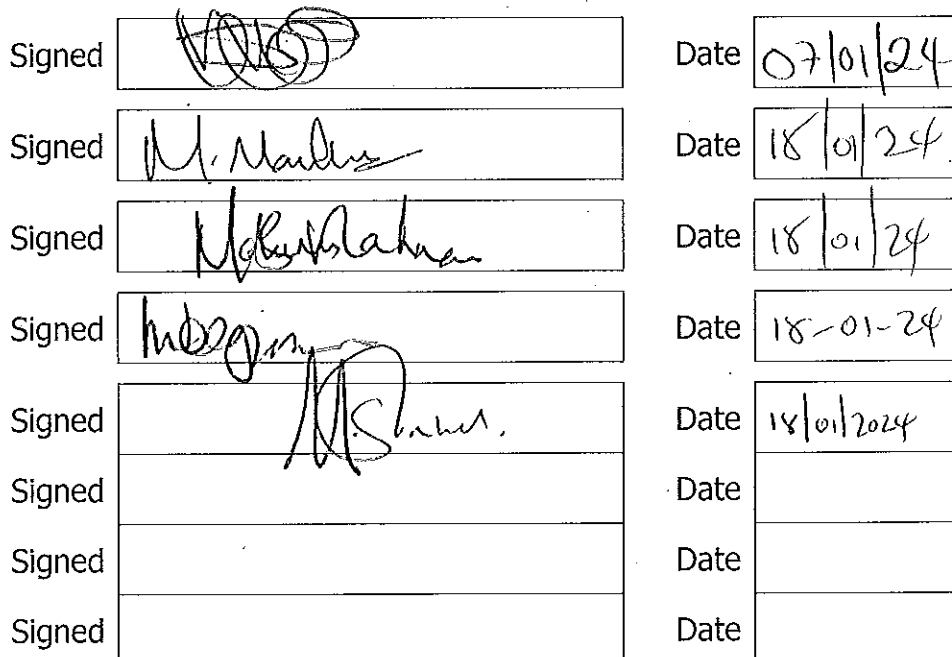 Signed Date 07/01/24
Signed M. Date 18/01/24
Signed Date 18/01/24
Signed Date 18-01-24
Signed Date 18/01/2024
Signed Date
Signed Date
Signed Date